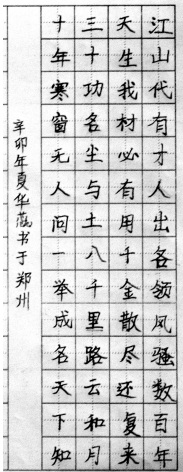 江山代有才人出各领风骚数百年
天生我材必有用千金散尽还复来
三十功名尘与土八千里路云和月
十年寒窗无人问一举成名天下知
辛卯年夏华书于郑州